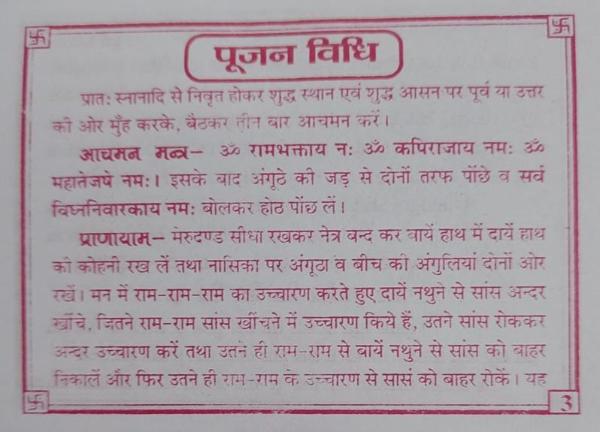 पूजन विधि
प्रातः स्नानादि से निवृत होकर शुद्ध स्थान एवं शुद्ध आसन पर पूर्व या उत्तर
की ओर मुँह करके, बैठकर तीन बार आचमन करें।
आचमन मन्त्र– ॐ रामभक्ताय नः ॐ कपिराजाय नमः ॐ
महातेजषे नमः। इसके बाद अंगूठे की जड़ से दोनों तरफ पोंछे व सर्व
विघ्ननिवारकाय नमः बोलकर होठ पोंछ लें।
प्राणायाम– मेरुदण्ड सीधा रखकर नेत्र बन्द कर बायें हाथ में दायें हाथ
की कोहनी रख लें तथा नासिका पर अंगूठा व बीच की अंगुलियां दोनों ओर
रखें। मन में राम-राम-राम का उच्चारण करते हुए दायें नथुने से सांस अन्दर
खींचे, जितने राम-राम सांस खींचने में उच्चारण किये हैं, उतने सांस रोककर
अन्दर उच्चारण करें तथा उतने ही राम-राम से बायें नथुने से सांस को बाहर
निकालें और फिर उतने ही राम-राम के उच्चारण से सासं को बाहर रोकें। यह
3